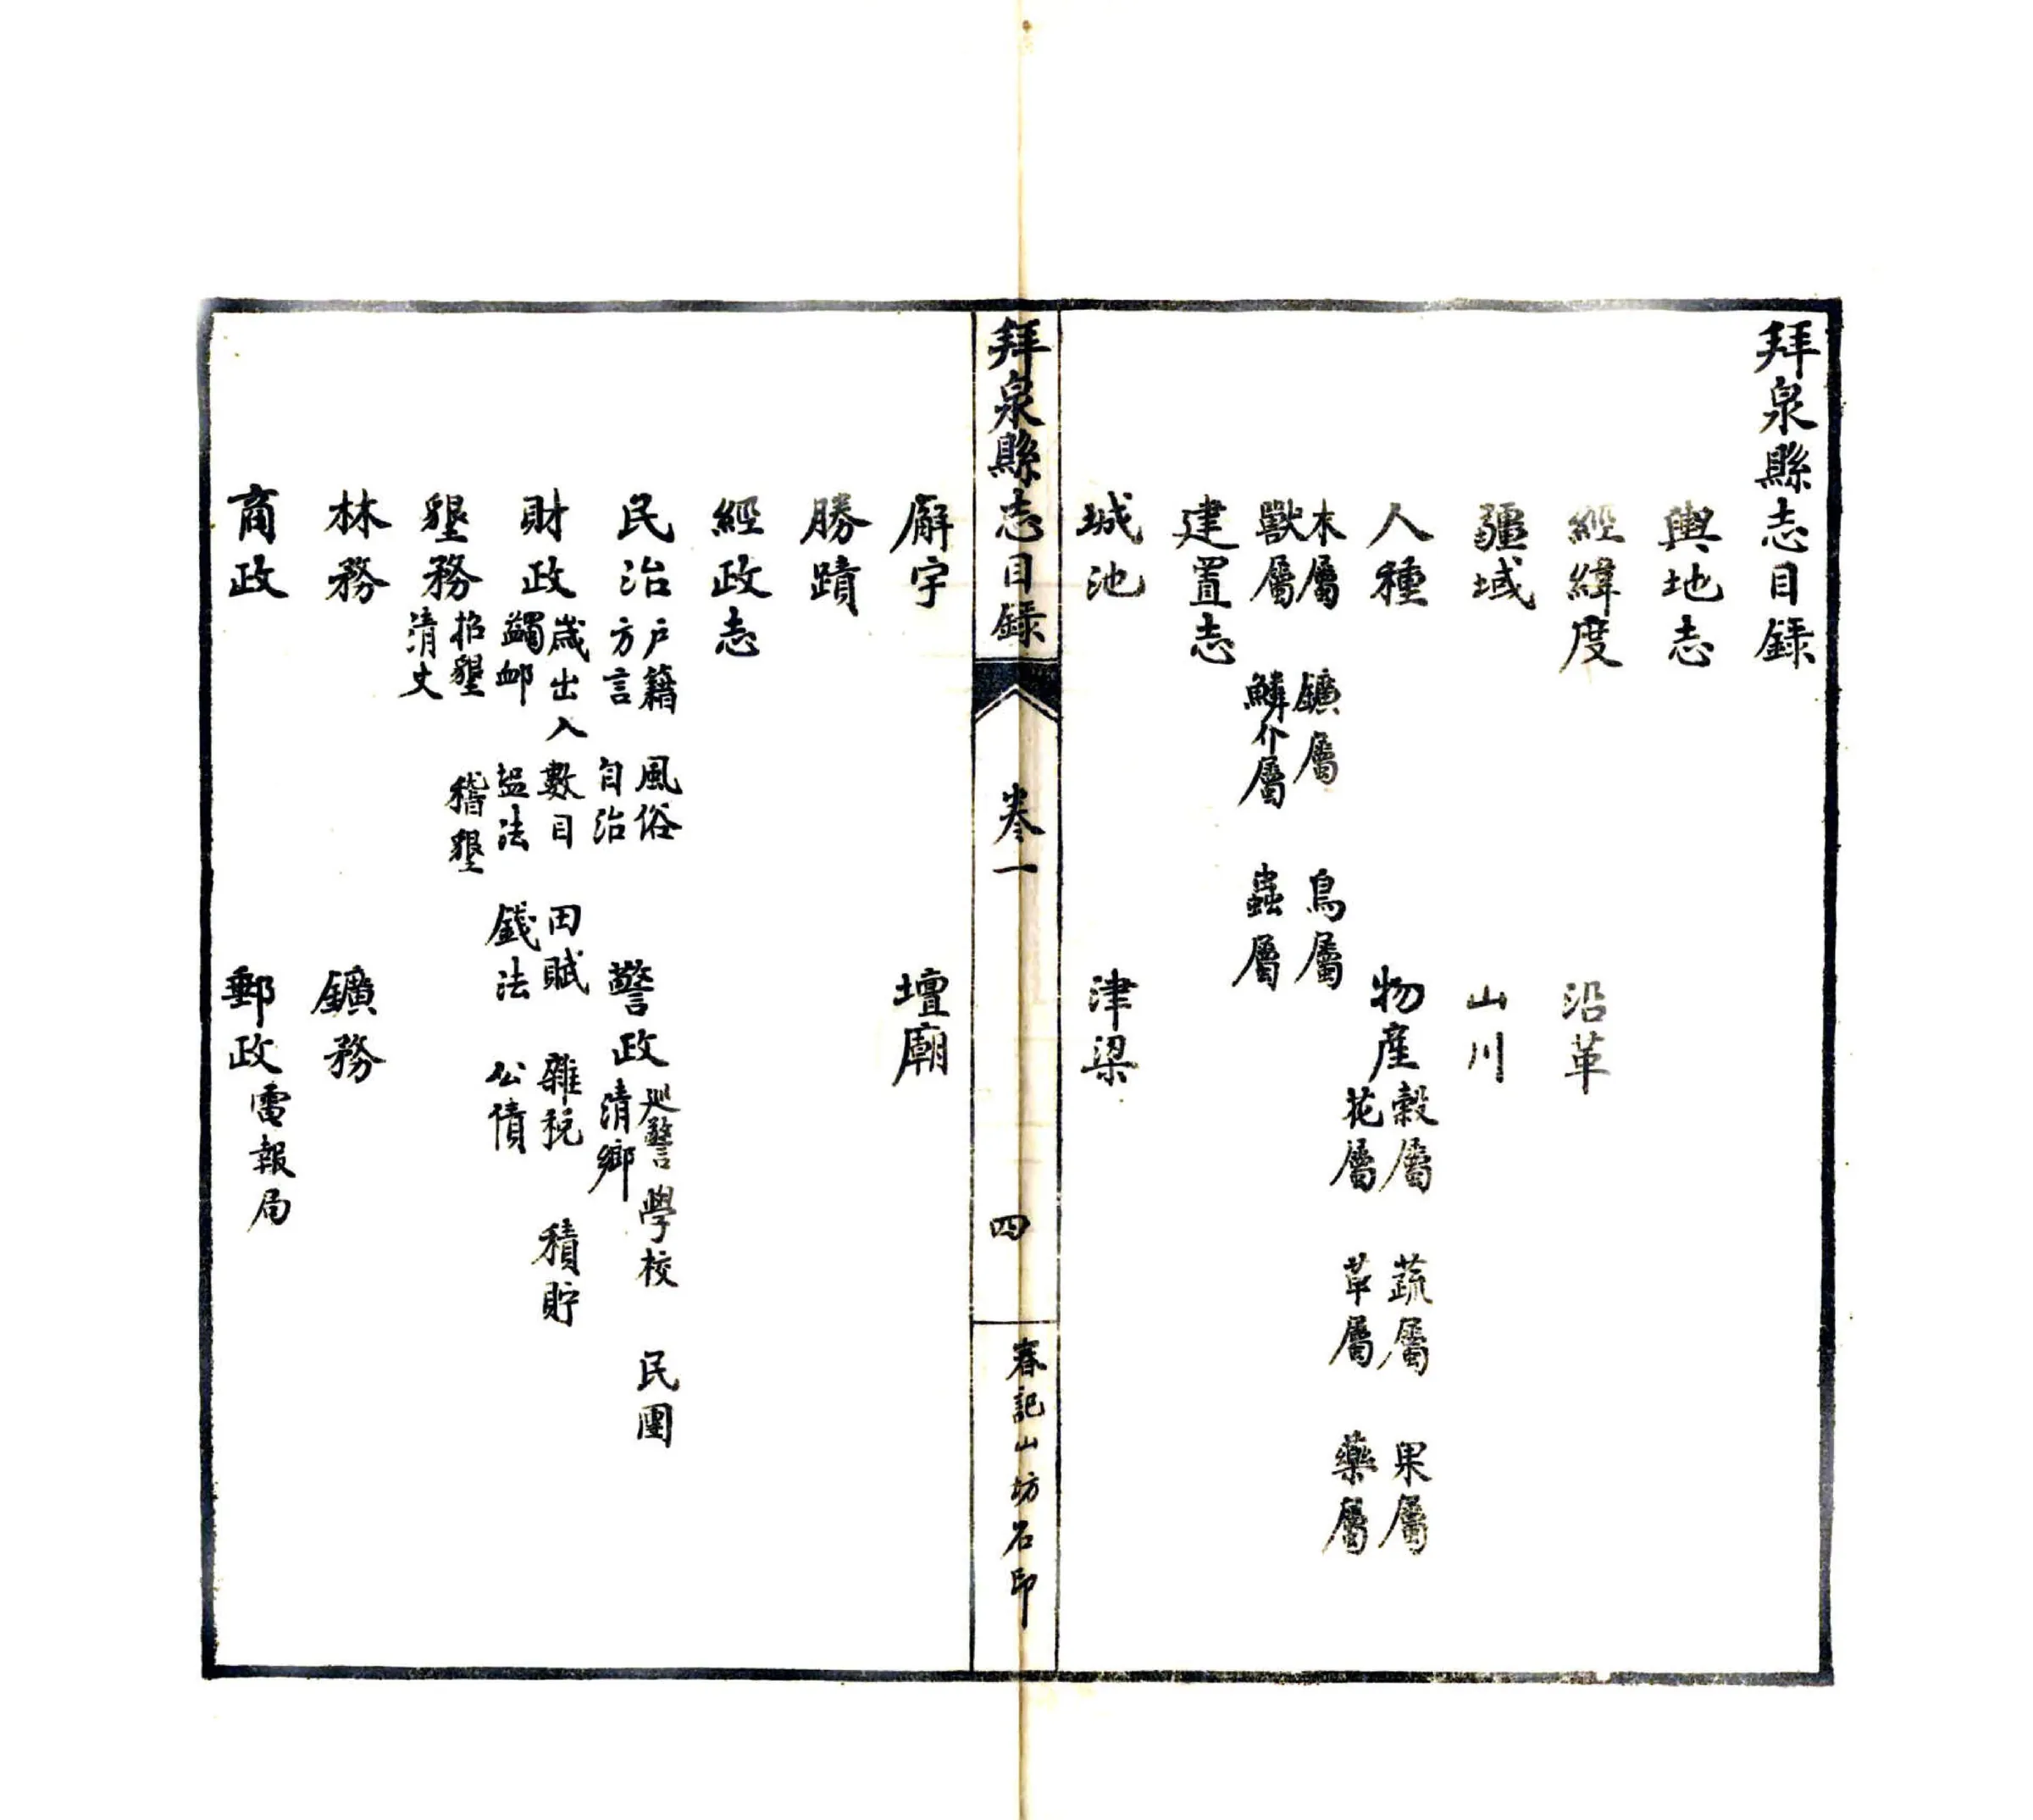 拜泉縣志目錄
輿地志
經緯度 沿革
疆域 山川
人種 物產 穀屬 蔬屬 果屬
花屬 草屬 藥屬
木屬 鑛屬 鳥屬
獸屬 鱗介屬 蟲屬
建置志
城池 津梁
拜泉縣志目錄 卷一 四 春記山坊石印
廨宇 壇廟
勝蹟
經政志
民治 戶籍 風俗
方言 自治
警政 巡警學校 民團
清鄉
財政 歲出入數目 田賦 雜稅 積貯
蠲卹 塩法 錢法 公債
墾務 招墾 稽墾
清丈
林務 鑛務
商政 郵政 電報局